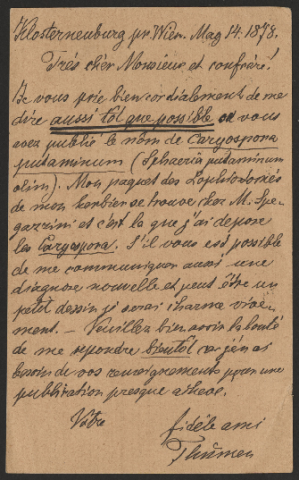 Klosterneuburg pr. Wien. May 14. 1878.
Trés chèr Monsieur et confrére!
Je vous prie bien cordialement de me
dire aussi tôt que possible où vous
avez publié le nom de Caryospora
putaminum (Sphaeria putaminum
olim). Mon paquet des Lophiostomées
de mon herbier se trouve chez M. Spe-
gazzini et c'est là que j'ai deposé
les Caryospora. S'il vous est possible
de me communiquer aussi une
diagnose nouvelle et peut être un
petit dessin je serai charmé vive-
ment. — Veuillez bien avoir la bonté
de me repondre bientôt car j'en ai
besoin de vos renseignements pour une
publication presque
Votre
fidèle ami
Thümen